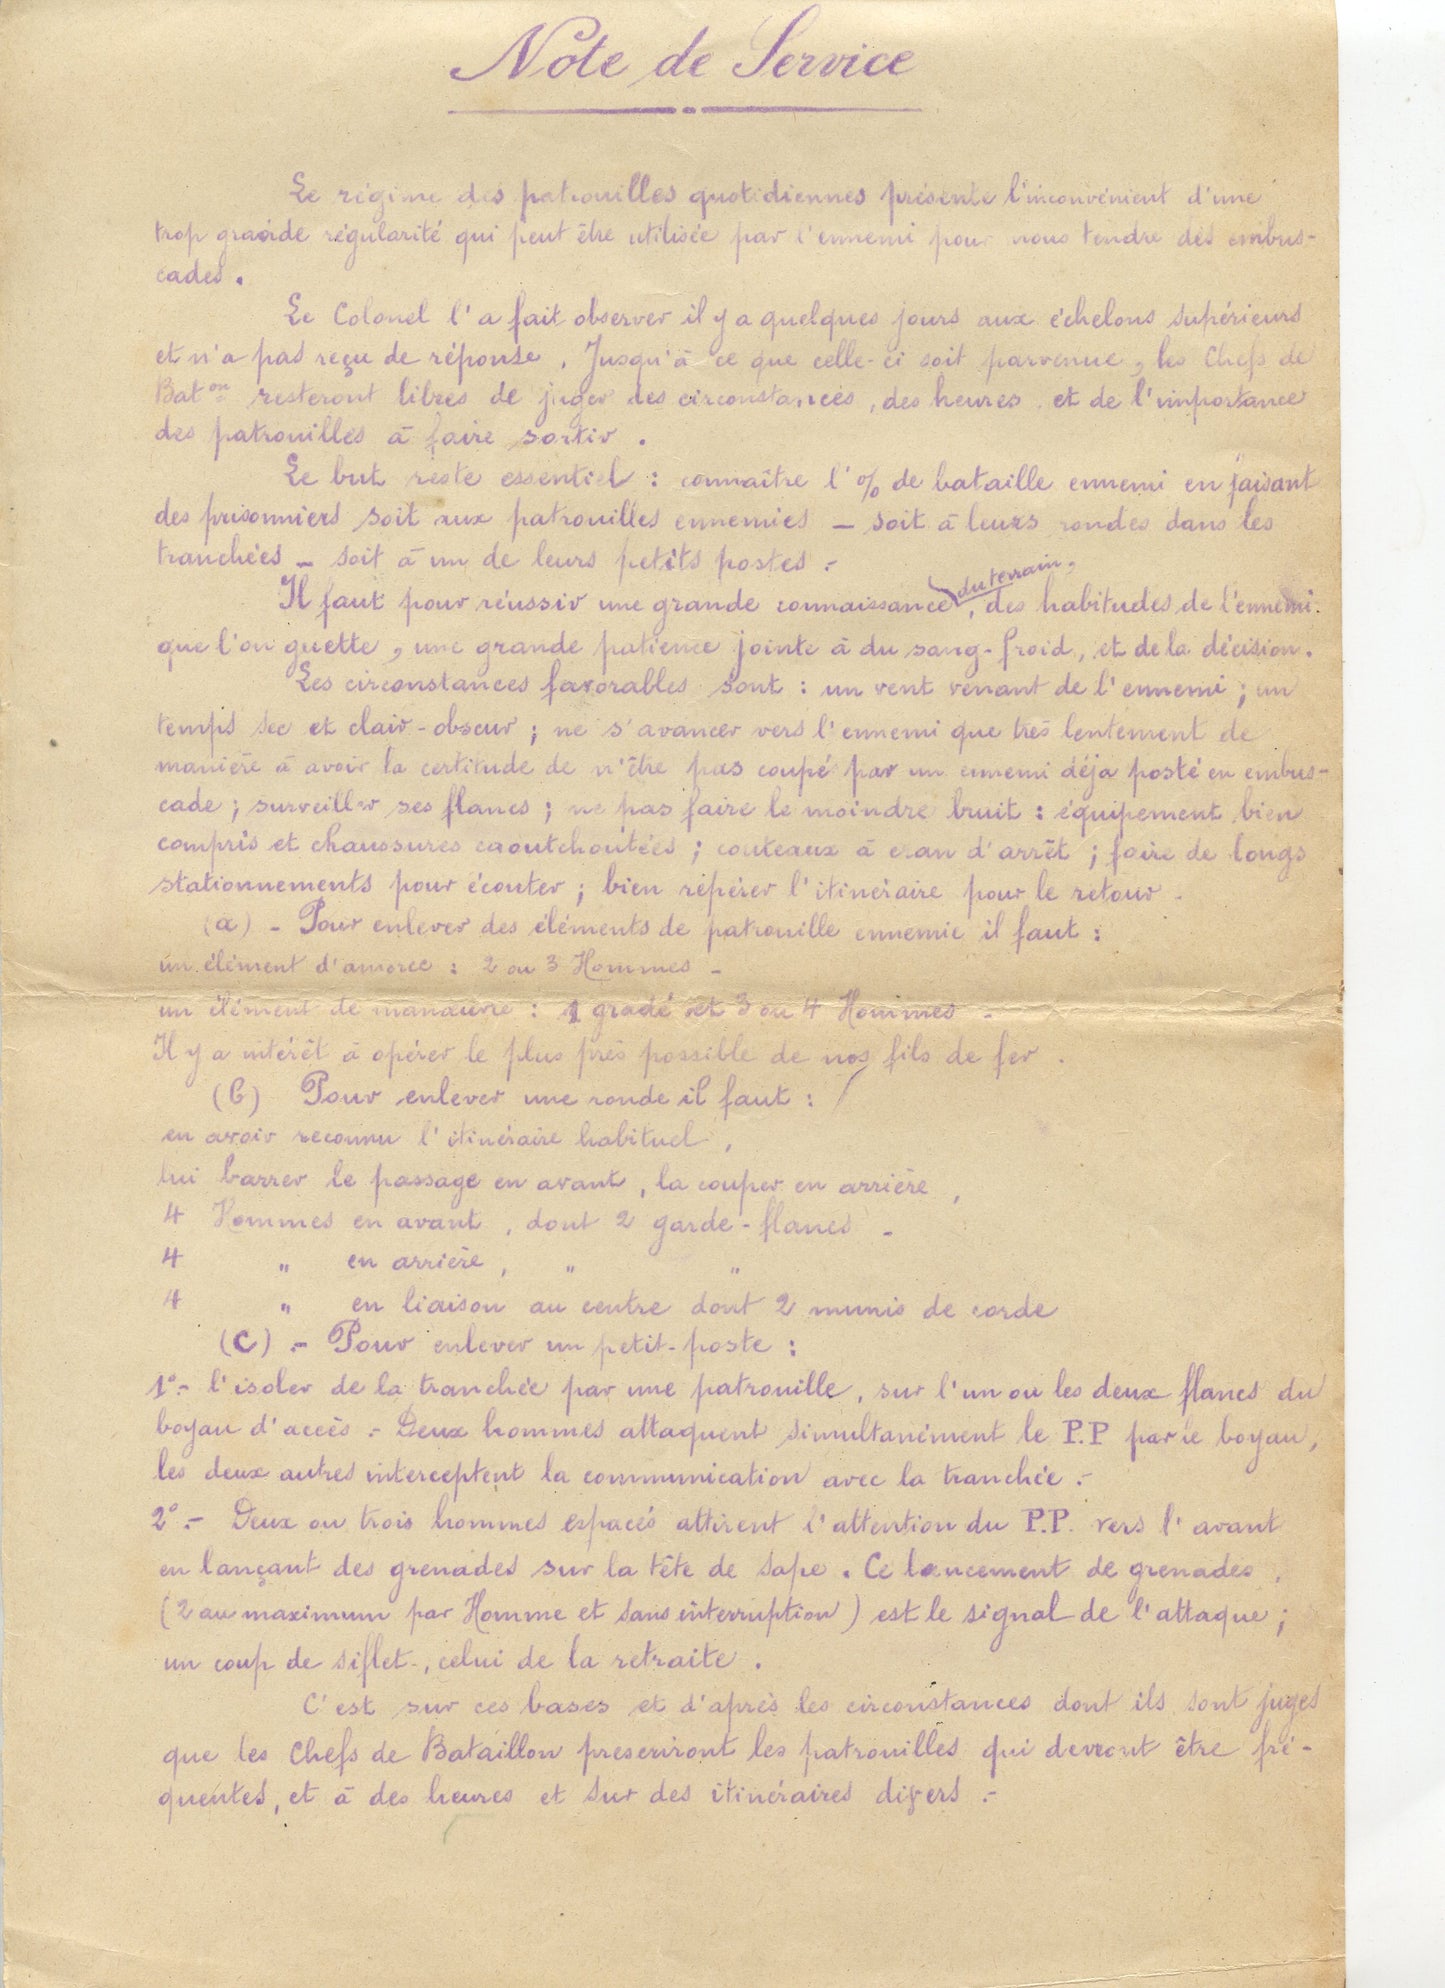 Note de Service
Le régime des patrouilles quotidiennes présente l'inconvénient d'une
trop grande régularité qui peut être utilisée par l'ennemi pour nous tendre des embus-
cades.
Le Colonel l'a fait observer il y a quelques jours aux échelons supérieurs
et n'a pas reçu de réponse. Jusqu'à ce que celle-ci soit parvenue, les Chefs de
Bat^on resteront libres de juger des circonstances, des heures et de l'importance
des patrouilles à faire sortir.
Le but reste essentiel : connaître l'% de bataille ennemi en faisant
des prisonniers soit aux patrouilles ennemies — soit à leurs rondes dans les
tranchées — soit à un de leurs petits postes.-
du terrain,
Il faut pour réussir une grande connaissance, des habitudes de l'ennemi
que l'on guette, une grande patience jointe à du sang-froid, et de la décision.
Les circonstances favorables sont : un vent venant de l'ennemi ; un
temps sec et clair-obscur ; ne s'avancer vers l'ennemi que très lentement de
manière à avoir la certitude de n'être pas coupé par un ennemi déjà posté en embus-
cade ; surveiller ses flancs ; ne pas faire le moindre bruit : équipement bien
compris et chaussures caoutchoutées ; couteaux à cran d'arrêt ; faire de longs
stationnements pour écouter ; bien repérer l'itinéraire pour le retour -
(a) - Pour enlever des éléments de patrouille ennemie il faut :
un élément d'amorce : 2 ou 3 Hommes -
un élément de manœuvre : 1 gradé et 3 ou 4 Hommes -
Il y a intérêt à opérer le plus près possible de nos fils de fer.
(b) Pour enlever une ronde il faut :
en avoir reconnu l'itinéraire habituel,
lui barrer le passage en avant, la couper en arrière,
4 Hommes en avant, dont 2 garde-flancs -
4 " en arrière, " "
4 " en liaison au centre dont 2 munis de corde
(C) .- Pour enlever un petit-poste :
1°.- l'isoler de la tranchée par une patrouille, sur l'un ou les deux flancs du
boyau d'accès .- Deux hommes attaquent simultanément le P.P par le boyau,
les deux autres interceptent la communication avec la tranchée .-
2°.- Deux ou trois hommes espacés attirent l'attention du P.P. vers l'avant
en lançant des grenades sur la tête de sape. Ce lancement de grenades,
(2 au maximum par Homme et sans interruption) est le signal de l'attaque ;
un coup de siflet-, celui de la retraite.
C'est sur ces bases et d'après les circonstances dont ils sont juges
que les Chefs de Bataillon prescriront les patrouilles qui devront être fré-
quentes, et à des heures et sur des itinéraires divers .-